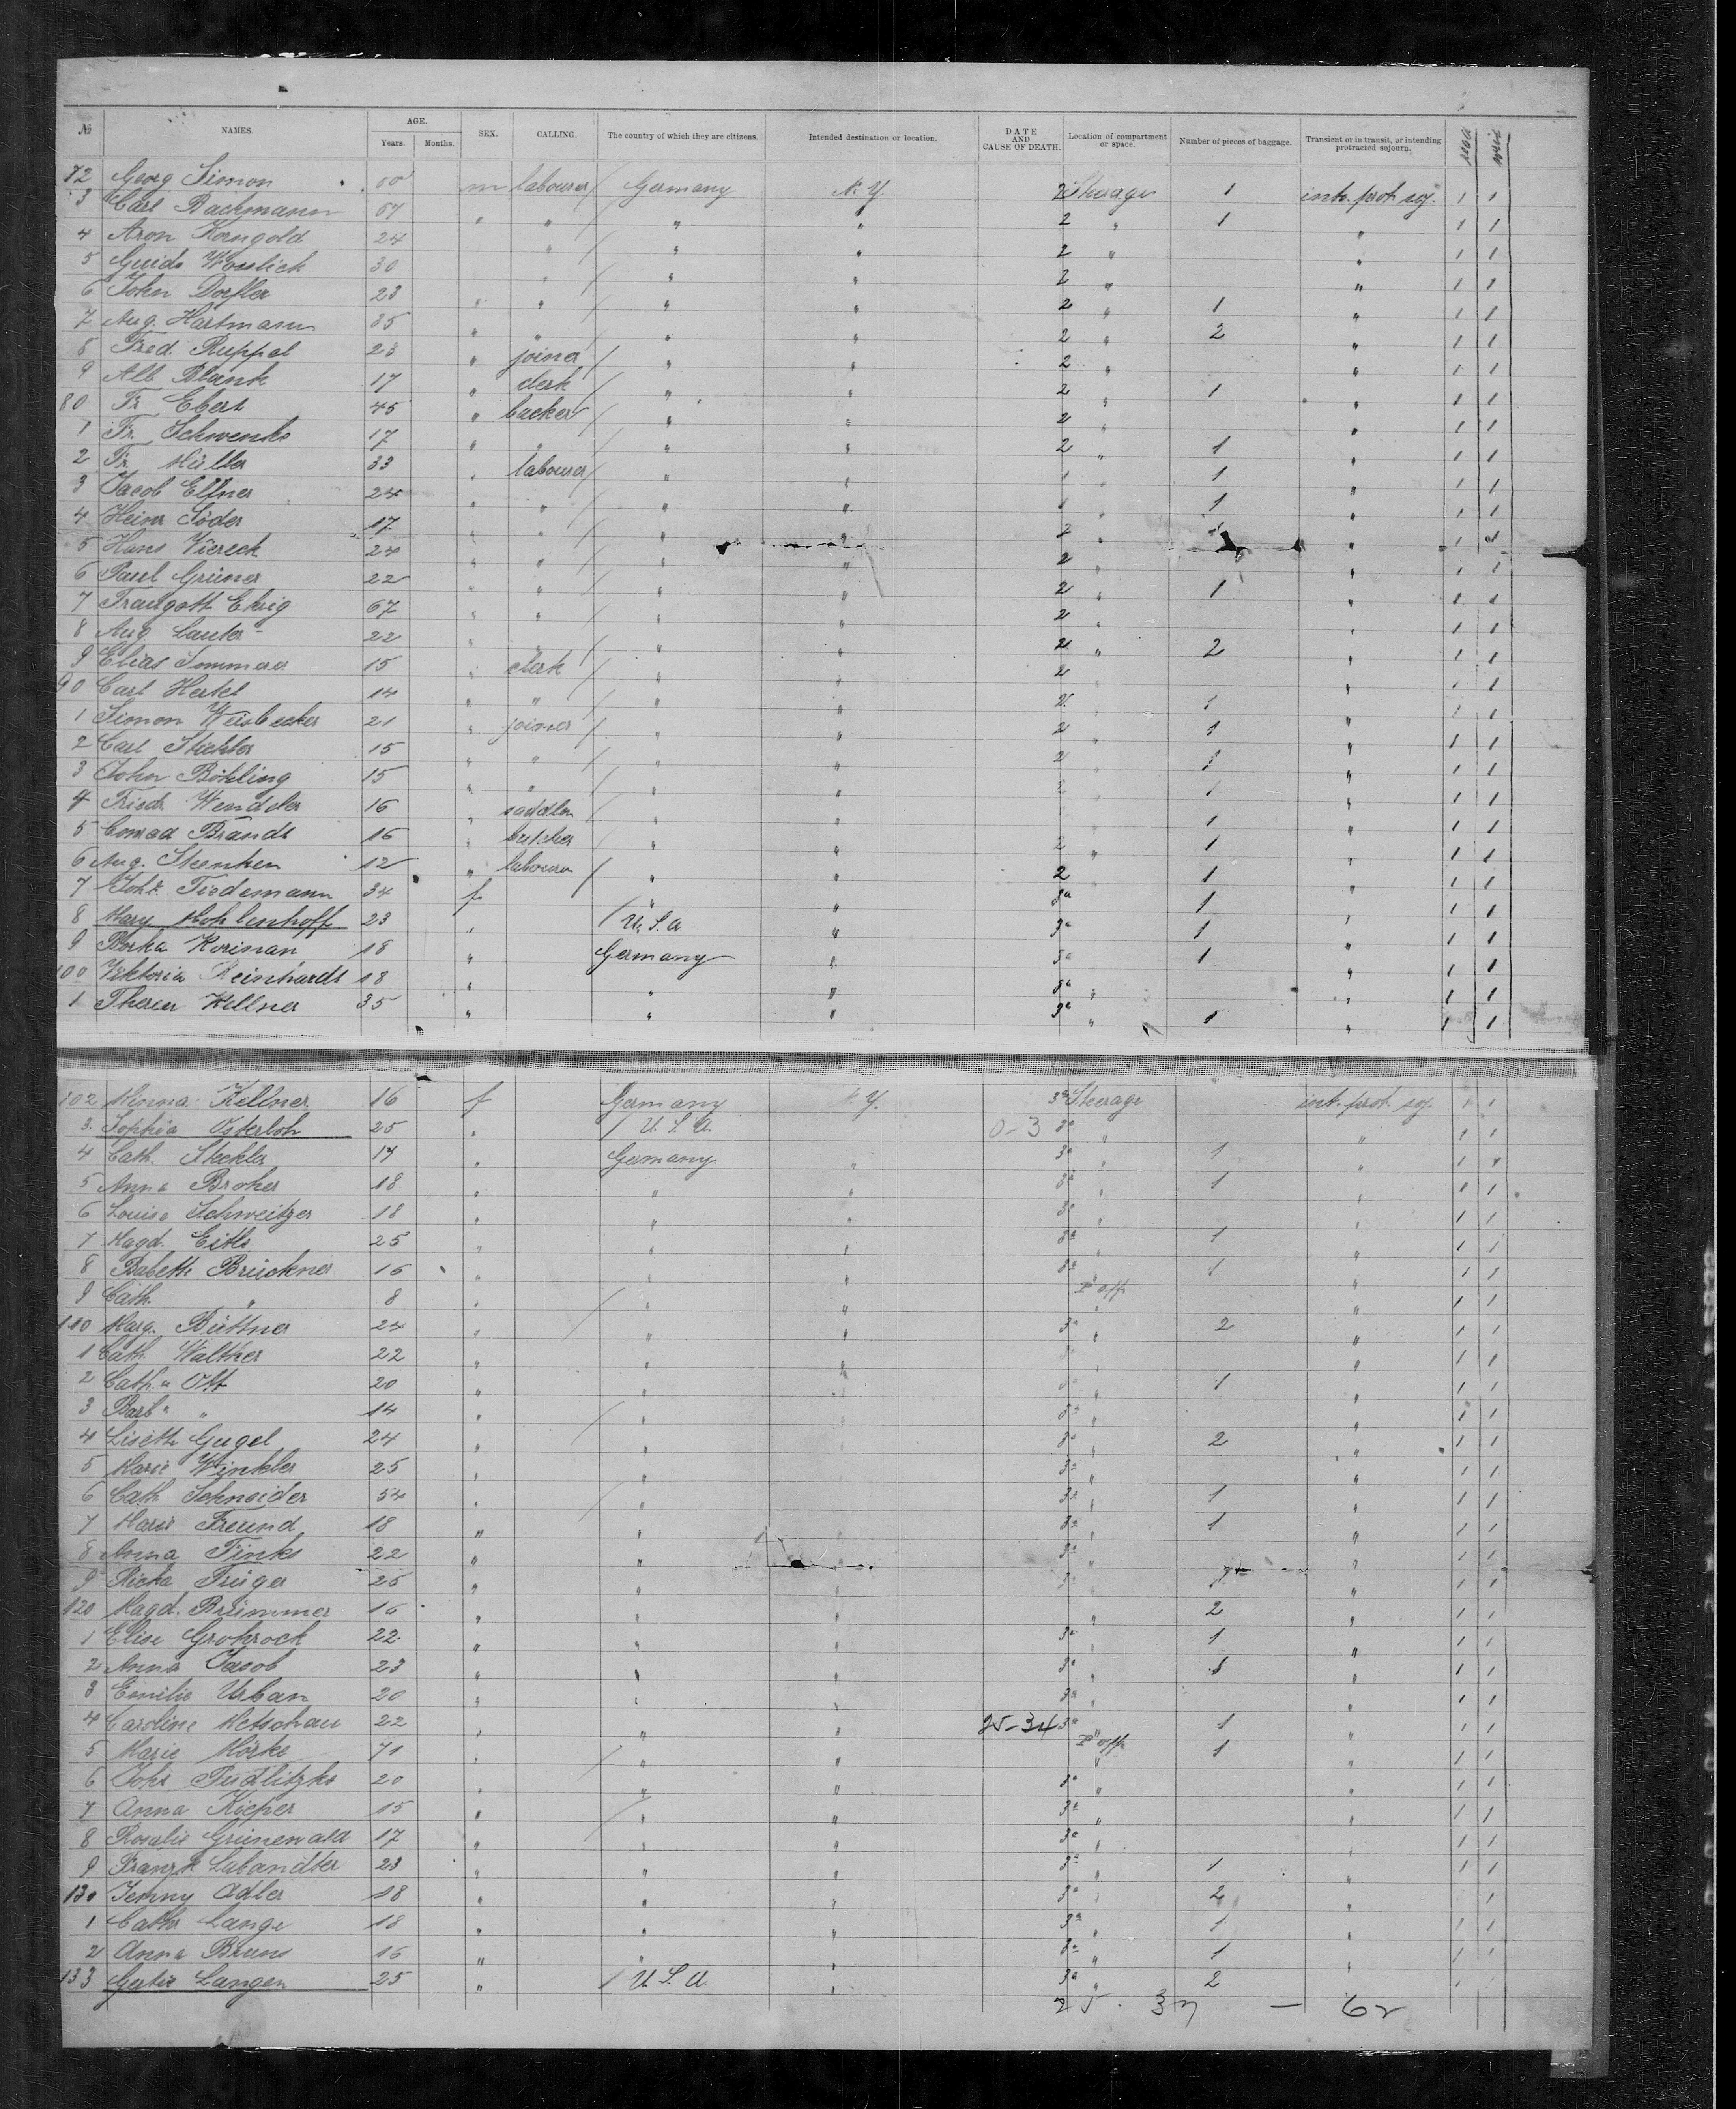 № NAMES. AGE. Years. Months. SEX. CALLING. The country of which they are citizens. Intended destination or location. DATE AND CAUSE OF DEATH. Location of compartment or space. Number of pieces of baggage. Transient or in transit, or intending protracted sojourn.
72 Georg Simon m labourer Germany N.Y. 2 Steerage 1 int. prot. soj. 1 1
3 Carl Bachmann " " " " 2 " 1 " 1 1
4 Aron Korngold 24 " " " 2 " " 1 1
5 Guido 30 " " " 2 " " 1 1
6 John Dorfler 23 " " " " 2 " 1 " 1 1
7 Aug. Hartmann 35 " " " " 2 " 2 " 1 1
8 Fred. Ruppel 23 " joiner " " 2 " 1 1
9 Alb. Blank 17 " clerk " " 2 " 1 " 1 1
80 Fr. Ebert 45 " backer " " 2 " " 1 1
1 Fr. Schwenke 17 " " " " 2 " 1 " 1 1
2 Fr. Müller 33 " labourer " " 1 " 1 " 1 1
3 Jacob Ellner 24 " " " " 1 " 1 " 1 1
4 Heinr Söder 17 " " " " 2 " " 1 1
5 Hans Viereck 24 " " " " 2 " " 1 1
6 Paul Grüner 22 " " " " 2 " 1 " 1 1
7 Traugott Ehrig 67 " " " " 2 " 1 1
8 Aug. Lauter 22 " " " " 2 " 2 " 1 1
9 Elias Sommerer 15 " clerk " " 2 " 1 1
90 Carl Hertel 14 " " " " 2 1 " 1 1
1 Simon Weisbecker 21 " joiner " " 2 1 " 1 1
2 Carl Stichler 15 " " " " 2 " 1 " 1 1
3 John Böhling 15 " " " " 2 1 " 1 1
4 Friedr. Wendeler 16 " saddler " " 1 " 1 1
5 Conrad Brandt 16 " butcher " " 2 " 1 " 1 1
6 Aug. Steenken 12 " labourer " " 2 1 " 1 1
7 Joh. Tiedemann 34 f " " 3a 1 " 1 1
8 Mary Mohlenhoff 23 " U.S.A 3a 1 " 1 1
9 Korinan 18 " Germany " 3a 1 " 1 1
100 Viktoria Reinhardt 18 " " " 3a " " 1 1
1 35 " " " 3a " 1 " 1 1
102 Minna Kellner 16 f Germany N.Y. 3a Steerage int. prot. soj. 1 1
3 Sophia Osterloh 25 " U.S.A. 0-3 3a " " 1 1
4 Cath. 17 " Germany " 3a " 1 " 1 1
5 Anna Broker 18 " " " 3a " 1 " 1 1
6 Louise Schweitzer 18 " " " 3a " " 1 1
7 Magd. 25 " " " 3a " 1 " 1 1
8 Babeth Brückner 16 " " " 3a " 1 " 1 1
9 Cath. " 8 " " " " 1 1
110 Marg. Büttner 24 " " " 3a " 2 " 1 1
1 Cath. Walther 22 " " " " 1 1
2 Cath. Ott 20 " " " 1 " 1 1
3 Barb. " 14 " " " 3a " " 1 1
4 Liseth Gugel 24 " " " 3a " 2 " 1 1
5 Marie Winkler 25 " " " 3a " " 1 1
6 Cath Schneider 54 " " " 3a " 1 " 1 1
7 Marie Freund 18 " " " 3a " 1 " 1 1
8 Anna Finke 22 " " 3a " " 1 1
9 Ricka Früger " " " 3a " " 1 1
120 Magd. Brümmer 16 " " " " 2 " 1 1
1 Elise Grohrock 22 " " " 3a " 1 " 1 1
2 Anna Jacob 23 " " " 3a " 1 " 1 1
3 Emilie Urban 20 " " " 3a " " 1 1
4 Caroline 22 " " " 25-34 3a 1 " 1 1
5 Marie Mörke 71 " " " " 1 " 1 1
6 Johs 20 " " " 3a " " 1 1
7 Anna Kieper 15 " " " 3a " " 1 1
8 Rosalie Grünewald 17 " " " 3a " 1 1
9 Labandter 23 " " " 3a " 1 " 1 1
130 Jenny Adler 18 " " " 3a " 2 " 1
1 Cathr Lange 18 " " " 3a " 1 " 1 1
2 Anna Bruns 16 " " " 3a " 1 " 1 1
133 Langen 25 " U.S.A. " 3a " 2 "
25 . 37 — 62